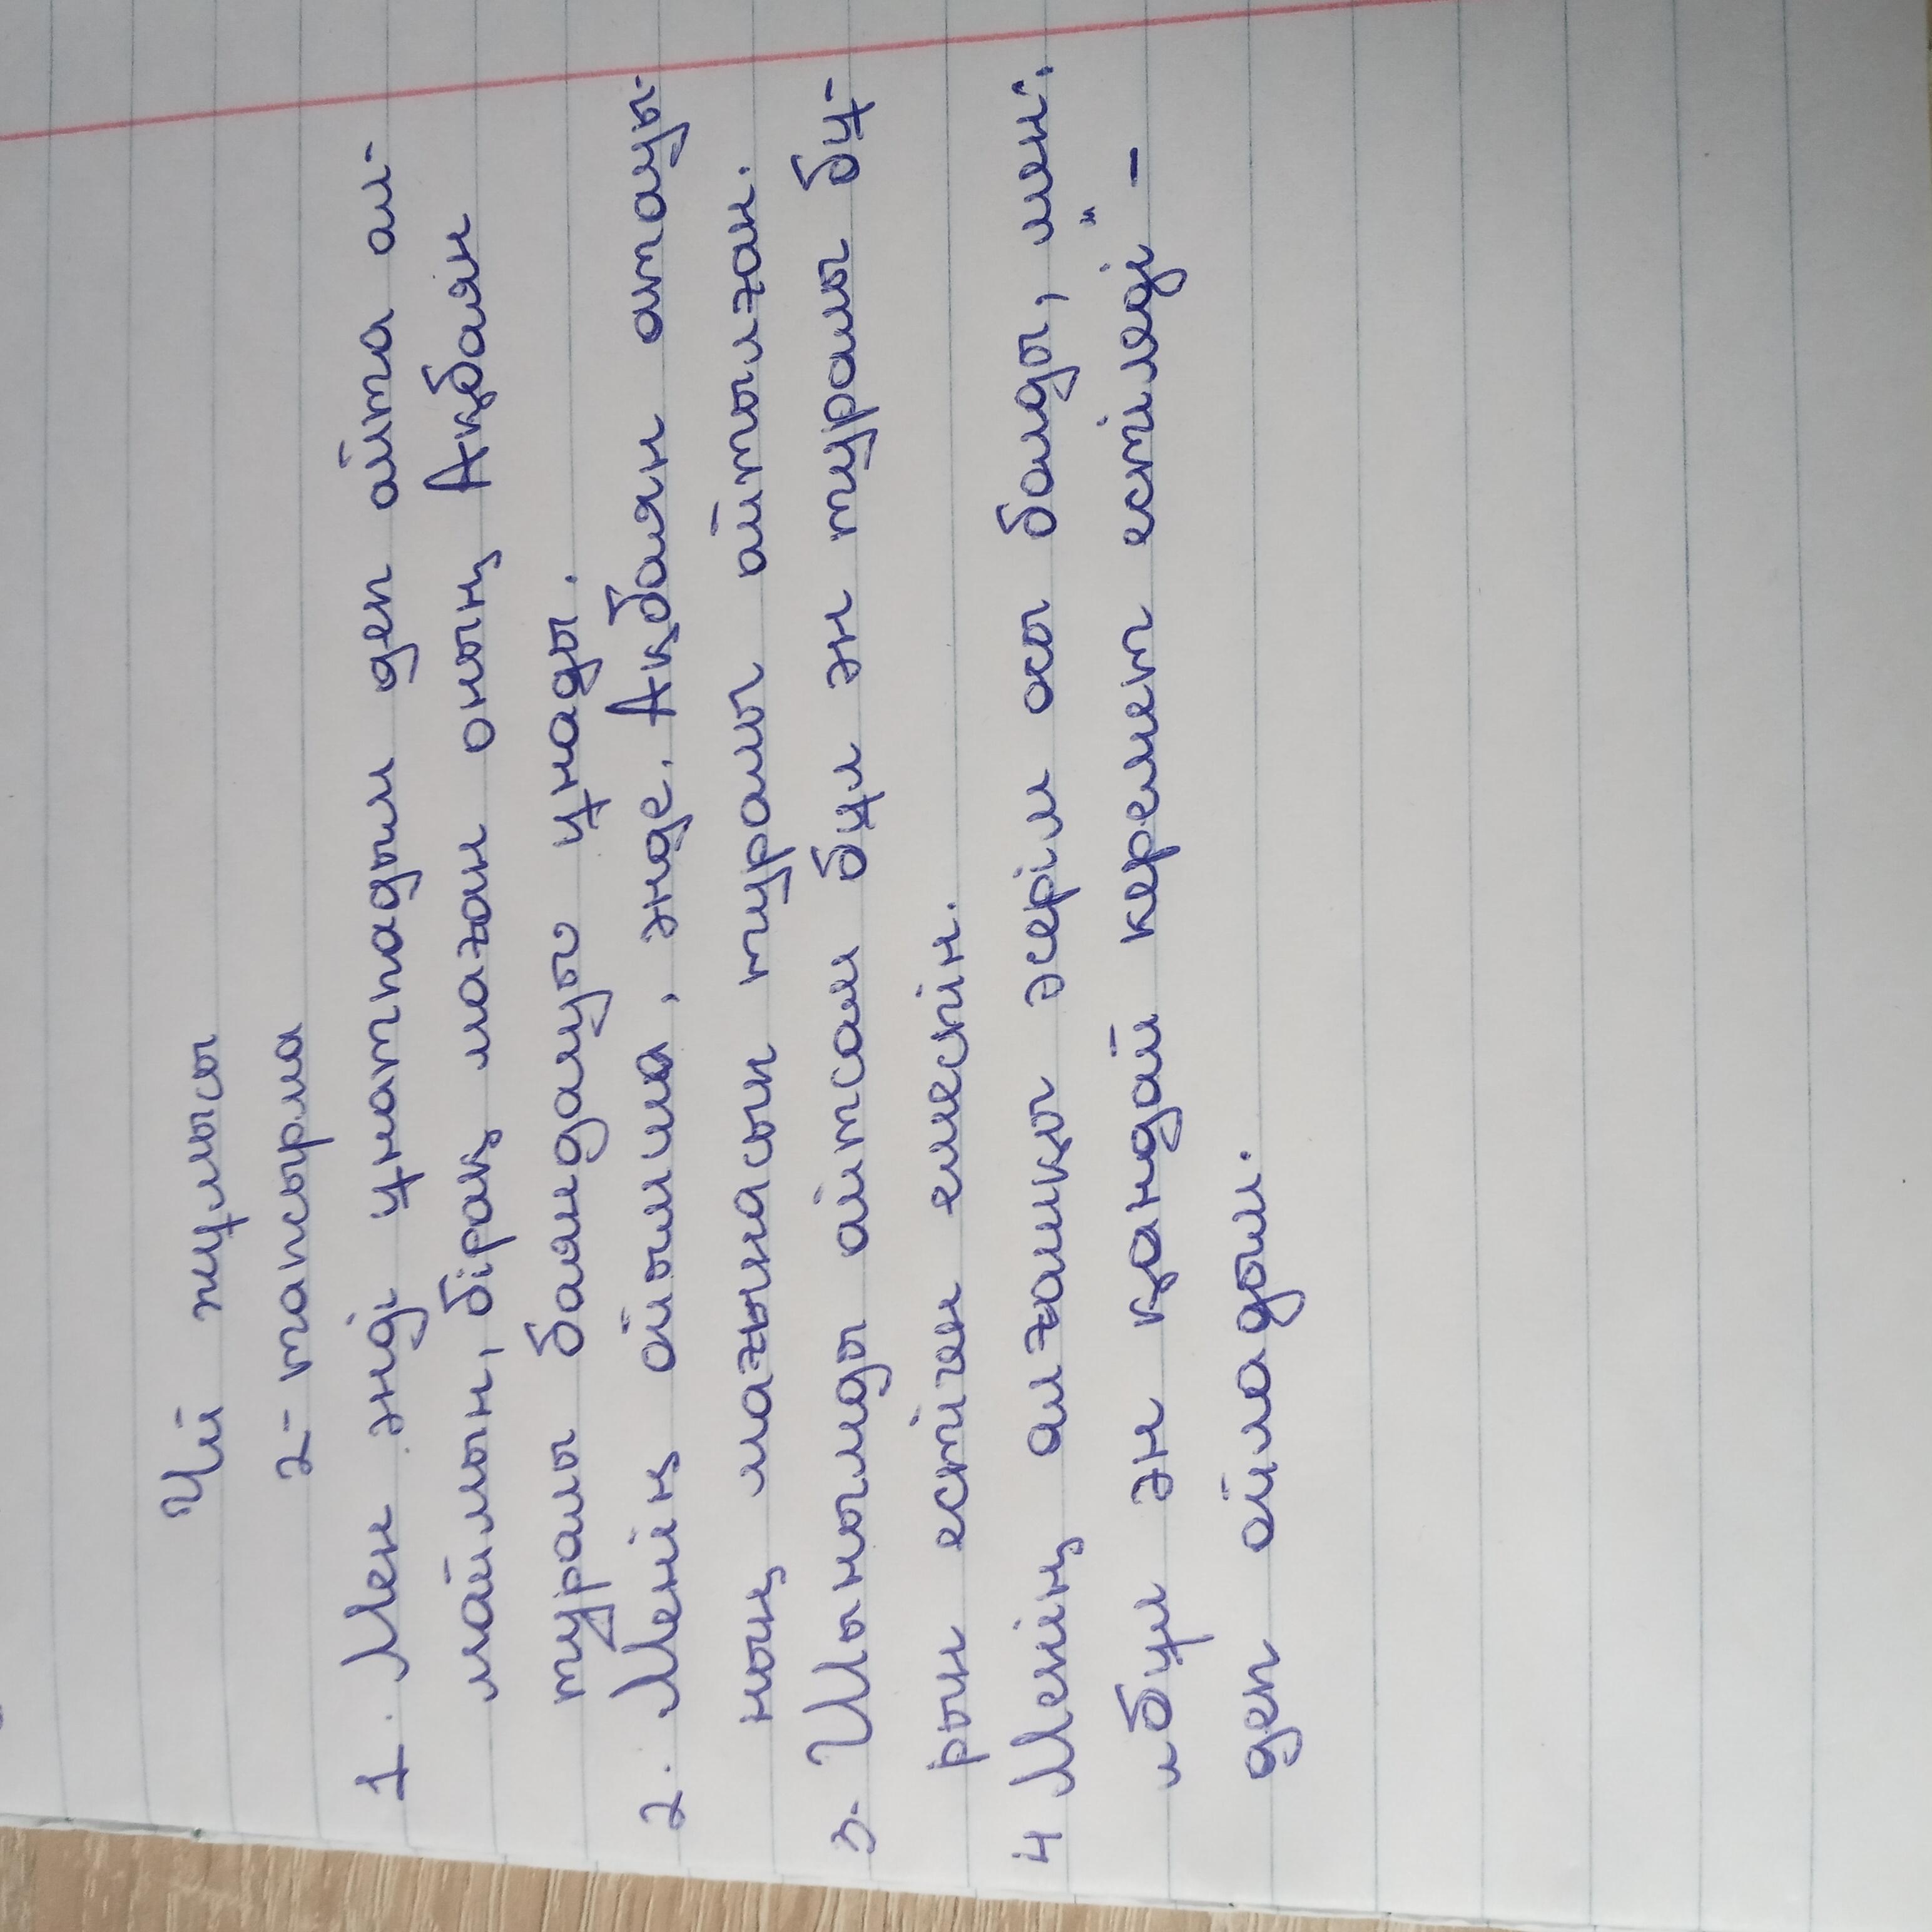 Үй жұмысы
2- тапсырма
1. Мен әнді ұнатпадым деп айта ал-
маймын, бірақ маған оның Ақбаян
туралы баяндалуы ұнады.
2. Менің ойымша, әнде. Ақбаян атауы-
ның мағынасын туралы айтылған.
3. Шынымды айтсам бұл ән туралы бұ-
рын естіген емеспін.
4 Менің алғашқы әсерім осы болды, мені.
"бұл ән қандай керемет естіледі" -
деп ойладым.